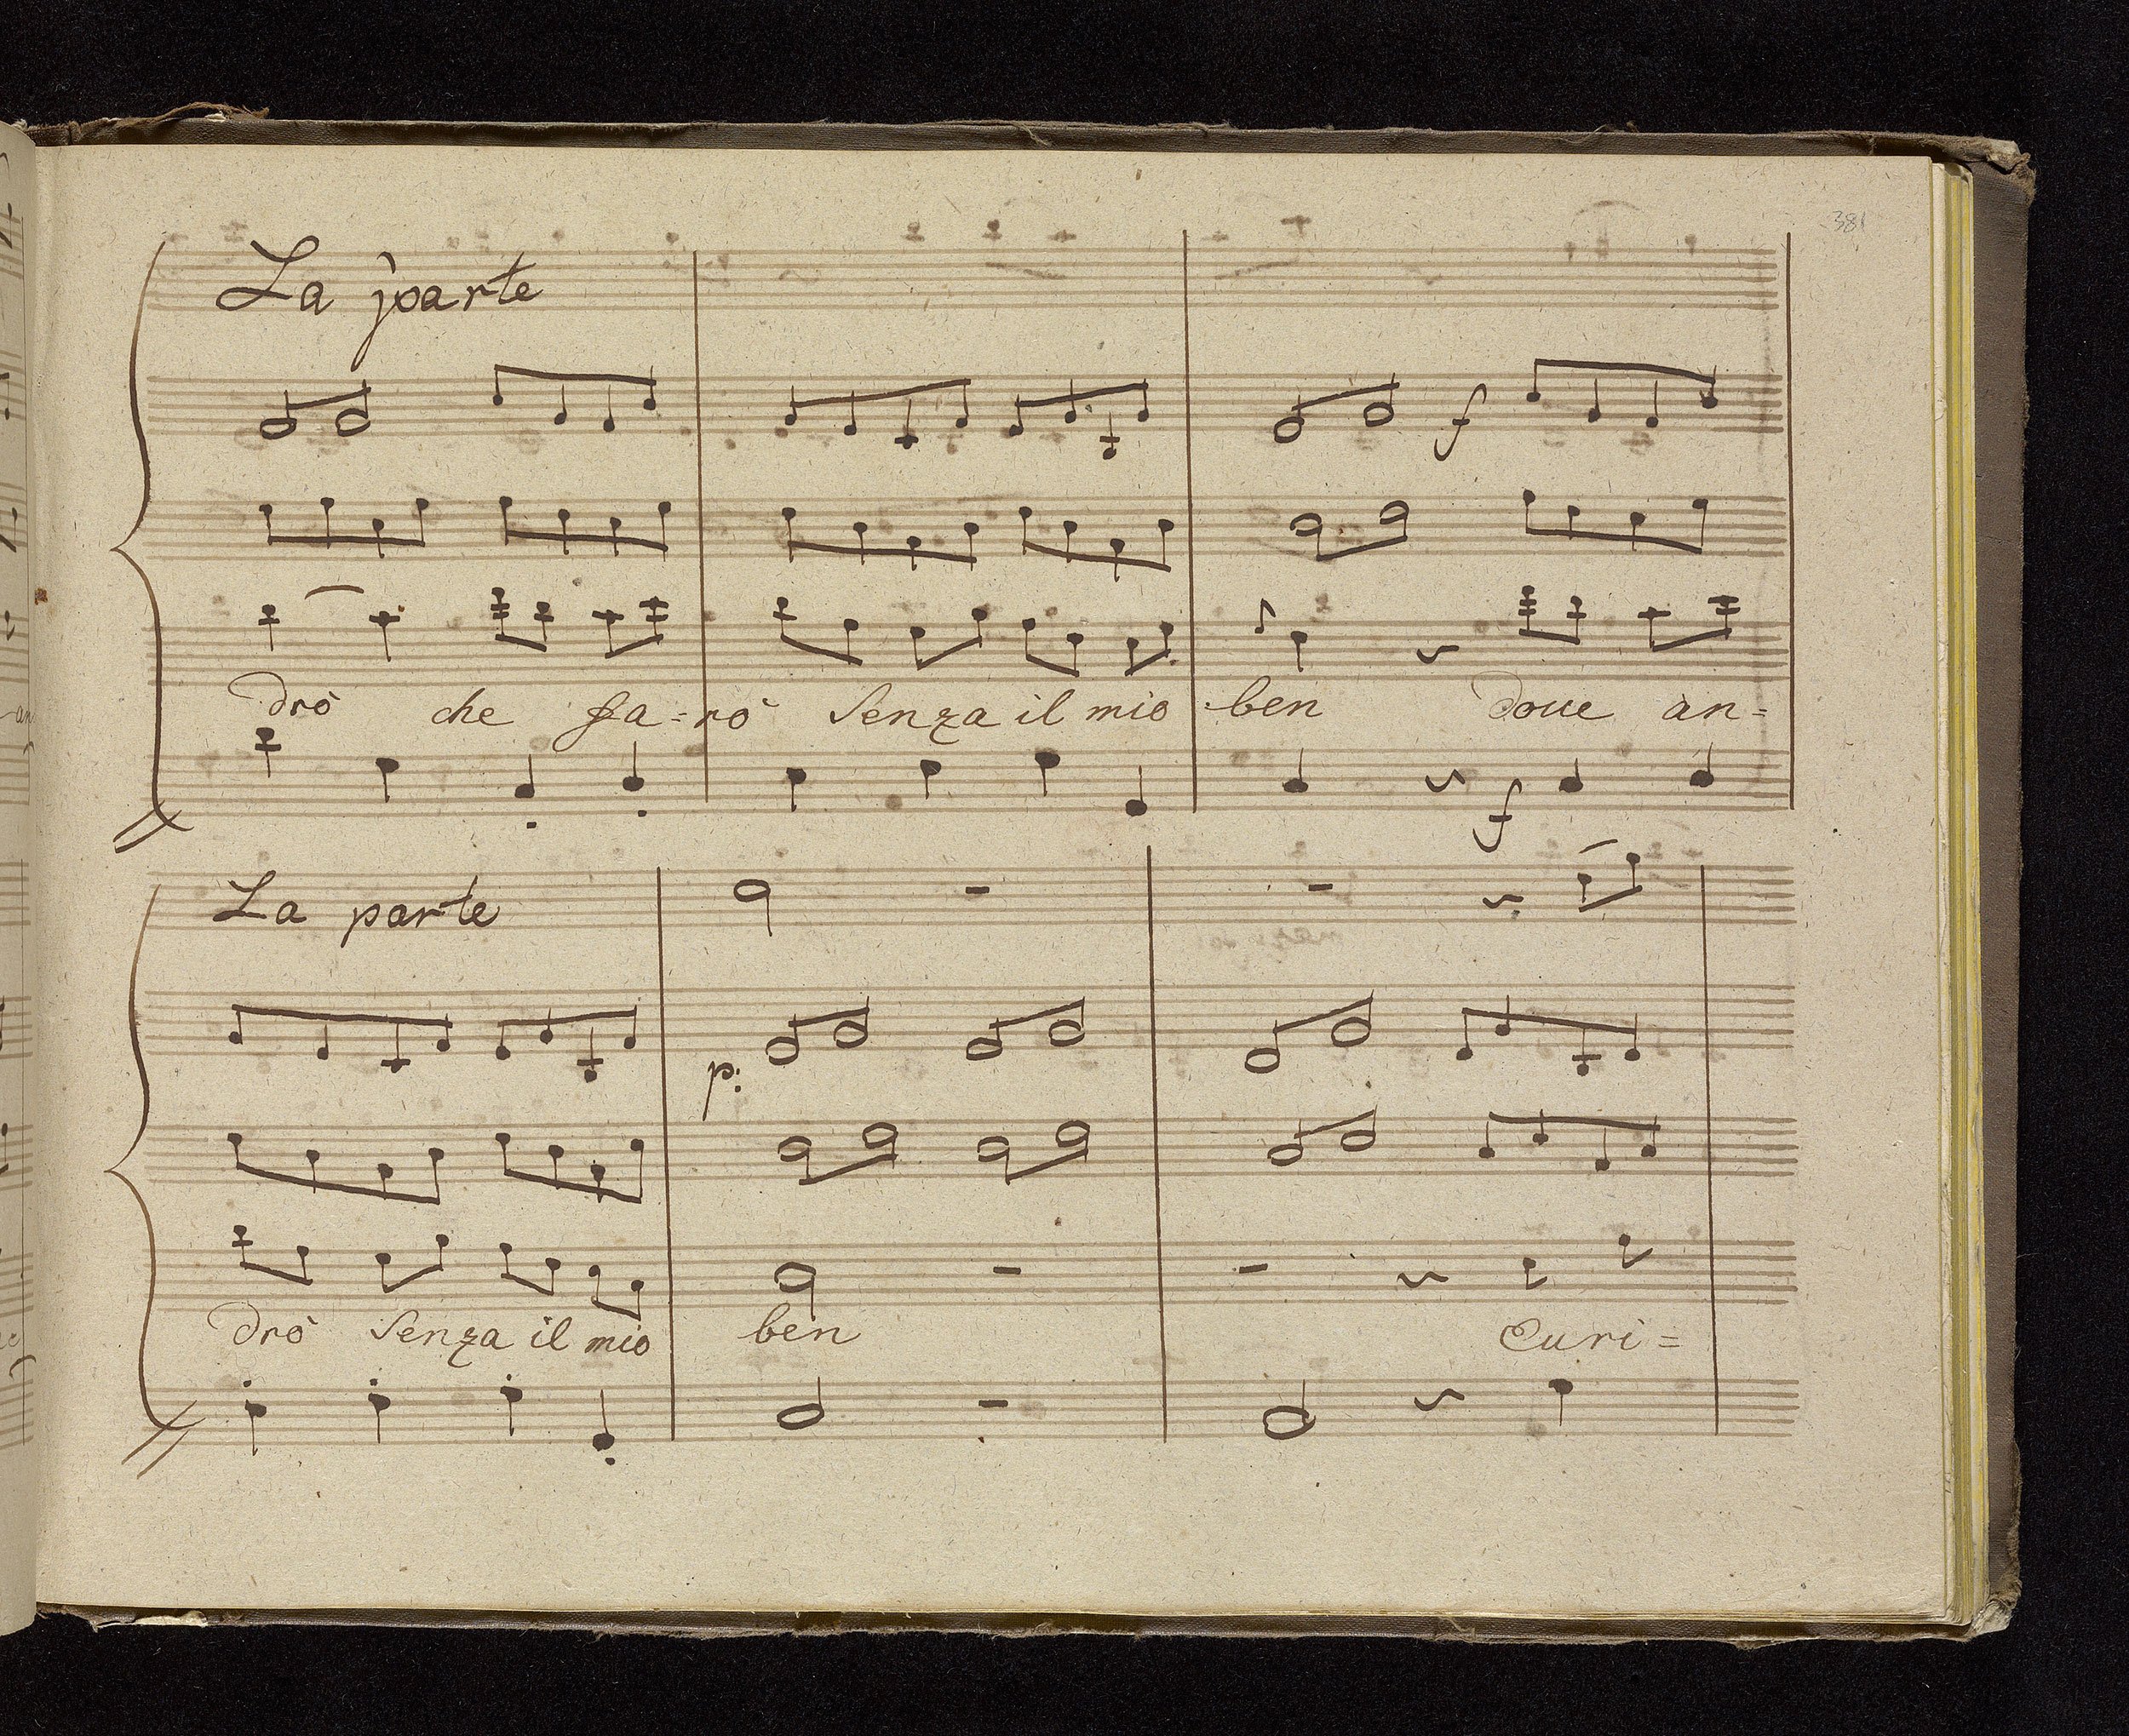 381
La parte
f
drò che fa=rò Senza il mio ben doue an=
f
La parte
p:
drò Senza il mio ben Euri=